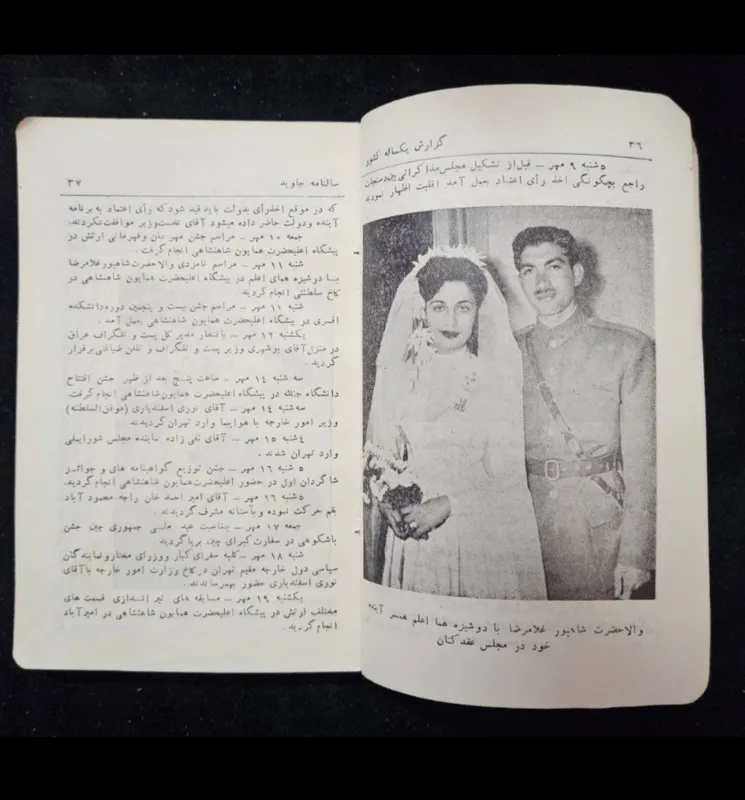 ۳۶
گزارش یکساله کشور
۵ شنبه ۹ مهر – قبل از تشکیل مجلس مذاکراتی بین دسنجان
راجع بچگونگی اخذ رأی اعتماد بعمل آمد اقلیت اظهار نمودند
والاحضرت شاهپور غلامرضا با دوشیزه هما اعلم همسر آینده
خود در مجلس عقد کنان
سالنامه جاوید
۳۷
که در موقع اخذ رأی بدولت باید قید شود که رأی اعتماد به برنامه
آینده دولت حاضر داده میشود آقای نخست وزیر موافقت نکردند،
جمعه ۱۰ مهر – مراسم جشن مهر گان وقهرمانی ارتش در
پیشگاه اعلیحضرت همایون شاهنشاهی انجام گرفت.
شنبه ۱۱ مهر – مراسم نامزدی والاحضرت شاهپور غلامرضا
با دوشیزه همای اعلم در پیشگاه اعلیحضرت همایون شاهنشاهی در
کاخ سلطنتی انجام گردید.
شنبه ۱۱ مهر – مراسم جشن بیست و پنجمین دوره دانشکده
افسری در پیشگاه اعلیحضرت همایون شاهنشاهی بعمل آمد.
یکشنبه ۱۲ مهر – بافتخار مدیر کل پست و تلگراف عراق
در منزل آقای بوشهری وزیر پست و تلگراف و تلفن ضیافتی برقرار
گردید.
سه شنبه ۱۴ مهر – ساعت پنج بعد از ظهر جشن افتتاح
دانشگاه جنگ در پیشگاه اعلیحضرت همایون شاهنشاهی انجام گرفت.
سه شنبه ۱۴ مهر – آقای نوری اسفندیاری (موفق السلطنه)
وزیر امور خارجه با هواپیما وارد تهران گردیدند
۴ شنبه ۱۵ مهر – آقای تقی زاده نماینده مجلس شورایملی
وارد تهران شدند.
۵ شنبه ۱۶ مهر – جشن توزیع گواهینامه های و جوائز
شاگردان اول در حضور اعلیحضرت همایون شاهنشاهی انجام گردید.
۵ شنبه ۱۶ مهر – آقای امیر احمد خان راجه محمود آباد
بقم حرکت نموده و بآستانه مشرف گردیدند.
جمعه ۱۷ مهر – بمناسبت عید ملی جمهوری چین جشن
باشکوهی در سفارت کبرای چین برپا گردید.
شنبه ۱۸ مهر – کلیه سفرای کبار و وزرای مختار و نمایندگان
سیاسی دول خارجه مقیم تهران در کاخ وزارت امور خارجه با آقای
نوری اسفندیاری حضور بهم رساندند.
یکشنبه ۱۹ مهر – مسابقه های تیر اندازی قسمت های
مختلف ارتش در پیشگاه اعلیحضرت همایون شاهنشاهی در امیر آباد
انجام گردید.